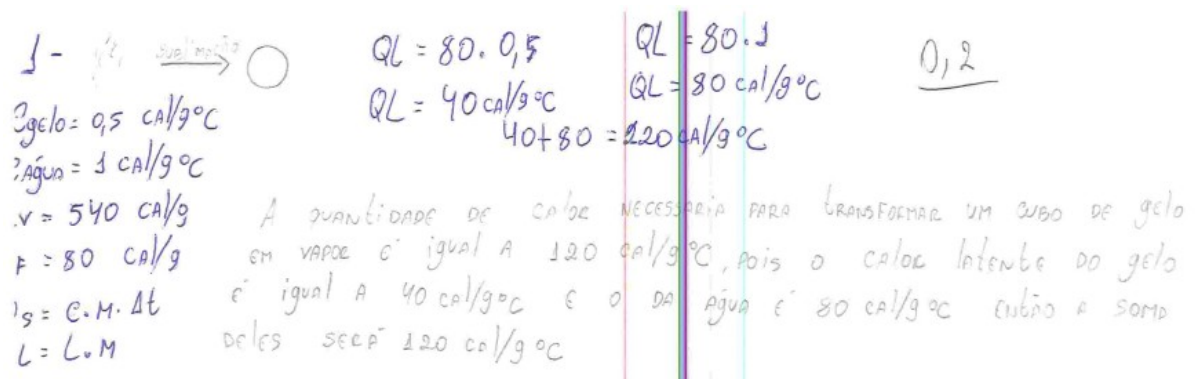 1- sublimação →
QL = 80. 0,5
QL = 40 cal/g°C
QL = 80.1
QL = 80 cal/g°C
40+80 = 120 cal/g°C
0,2
gelo = 0,5 cal/g°C
água = 1 cal/g°C
v = 540 cal/g
F = 80 cal/g
s = C.M.Δt
L = L.M
A quantidade de calor necessaria para transformar um cubo de gelo
em vapor é igual a 120 cal/g°C, pois o calor latente do gelo
é igual a 40 cal/g°C e o da água é 80 cal/g°C então a soma
deles será 120 cal/g°C